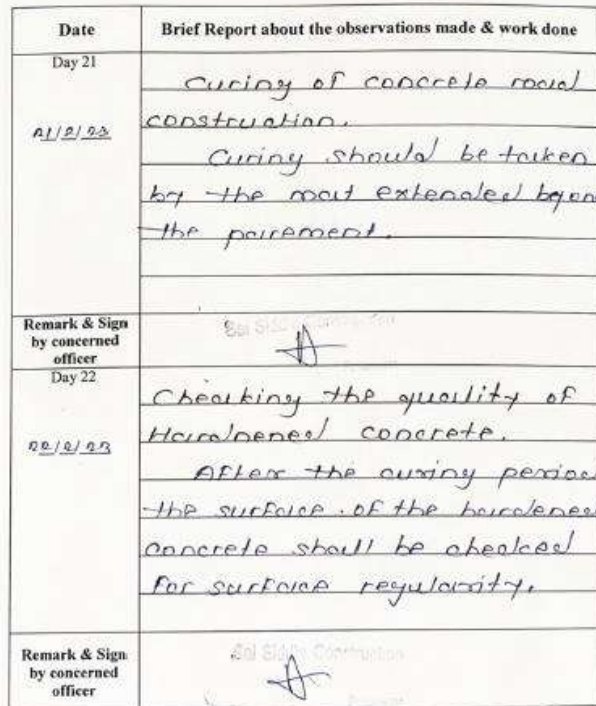 Date
Brief Report about the observations made & work done
Day 21
21/2/23
Curing of concrete road
construction.
Curing should be taken
by the mat extended beyon
the pavement.
Remark & Sign
by concerned
officer
Sai Siddhi Construction
Day 22
22/2/23
Checking the quality of
Hardnened concrete.
After the curing period
the surface of the hardened
concrete shall be checked
for surface regularity.
Remark & Sign
by concerned
officer
Sai Siddhi Construction